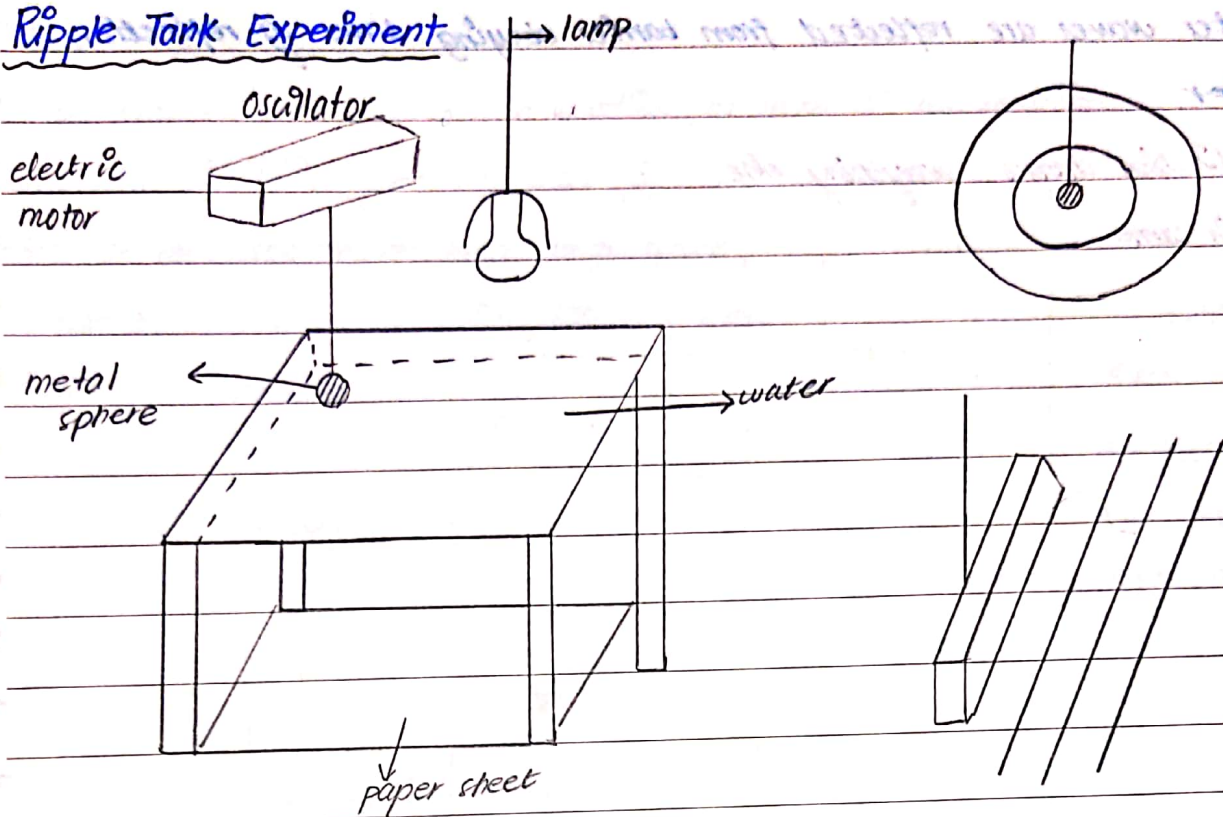 Ripple Tank Experiment
lamp
oscillator
electric
motor
metal
sphere
water
paper sheet